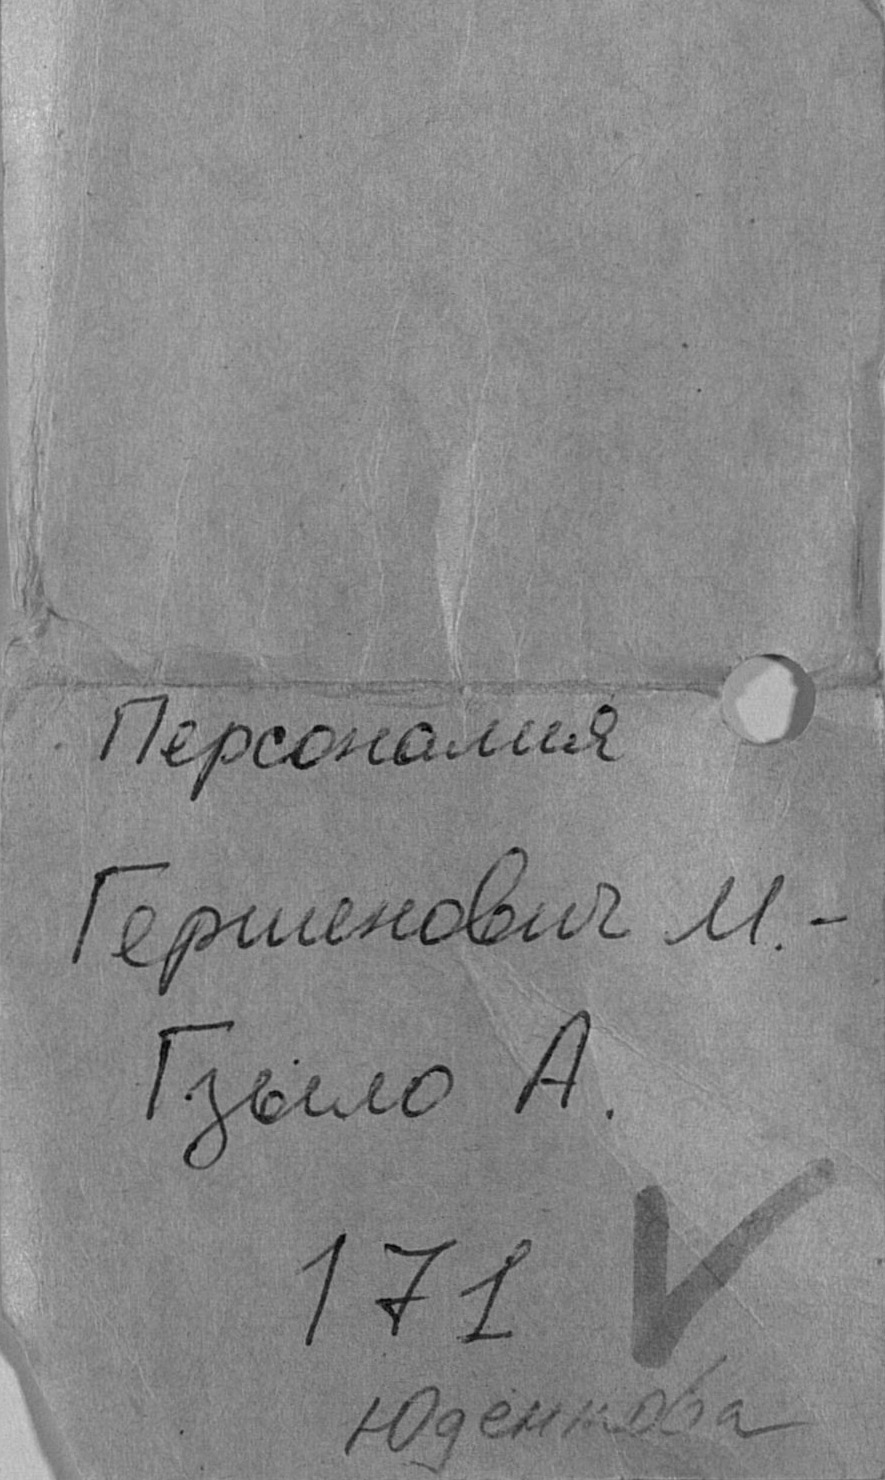 Персоналия
Гершенович М.-
Гзыло А.
171
Юденкова